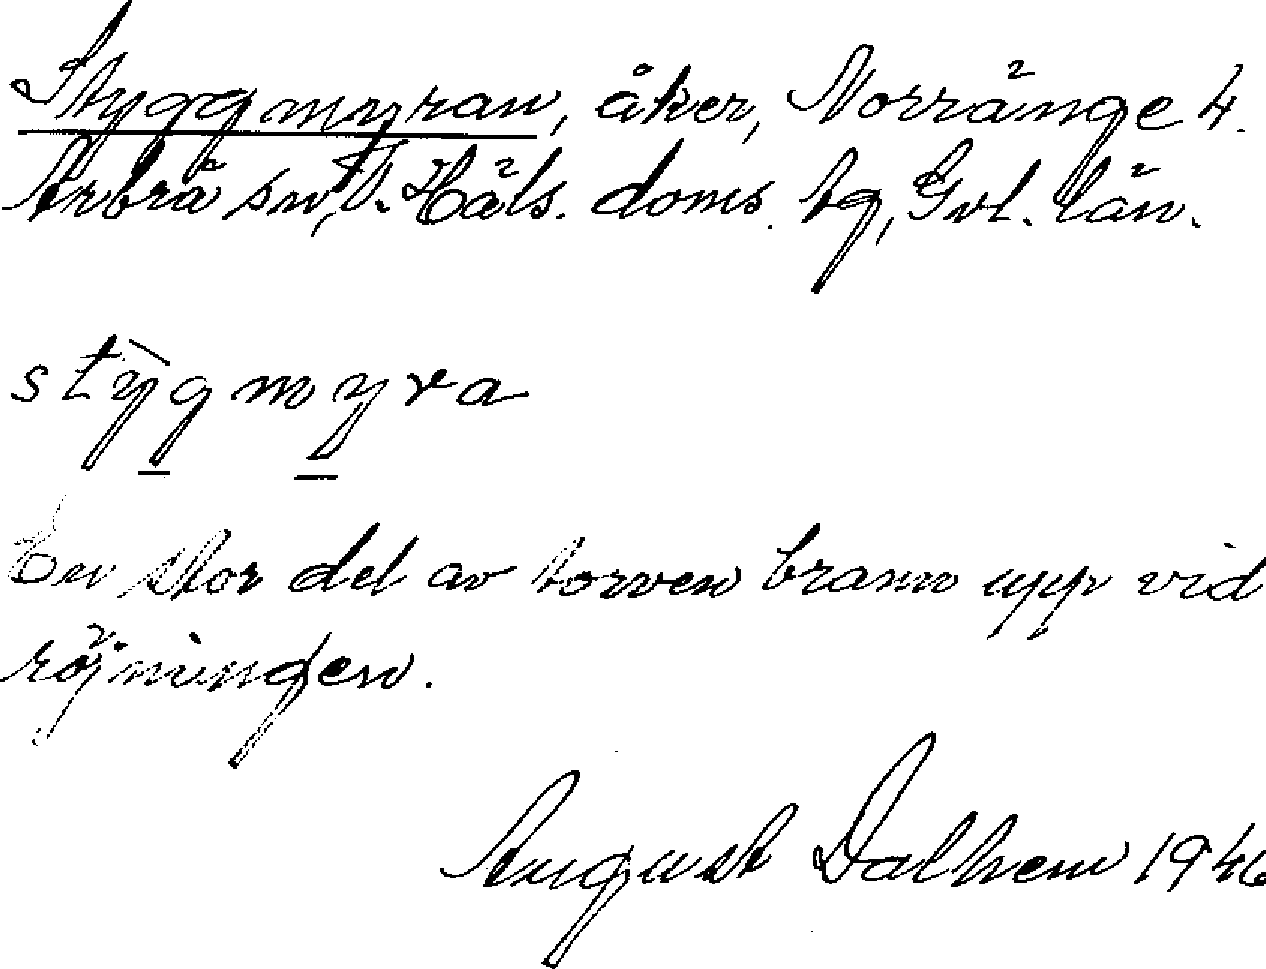 Styggmyran, åker, Norränge 4.
Arbrå sn, V. Häls. doms. tg, Gvl. län.
stỳgmyra
En stor del av torven brann upp vid
röjningen.
August Dalhem 1946